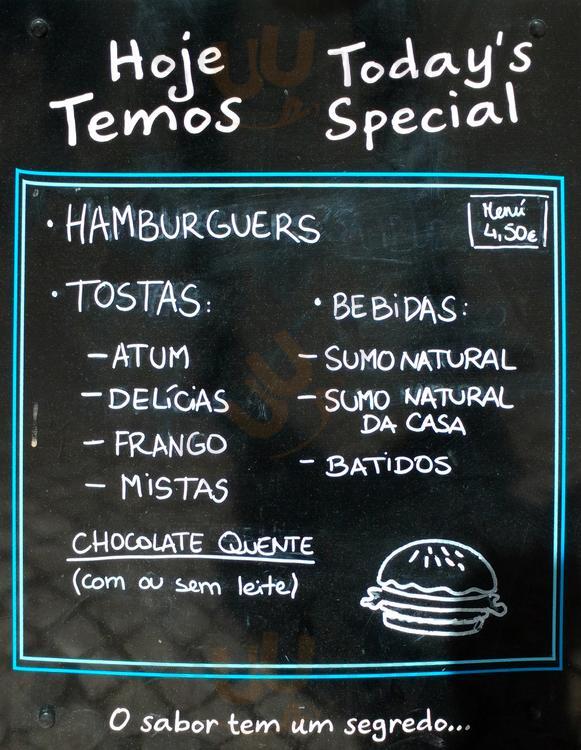 Hoje
Temos
Today's
Special
• HAMBURGUERS
Menú
4,50€
• TOSTAS:
– ATUM
– DELÍCIAS
– FRANGO
– MISTAS
• BEBIDAS:
– SUMO NATURAL
– SUMO NATURAL
DA CASA
– BATIDOS
CHOCOLATE QUENTE
(com ou sem leite)
O sabor tem um segredo...